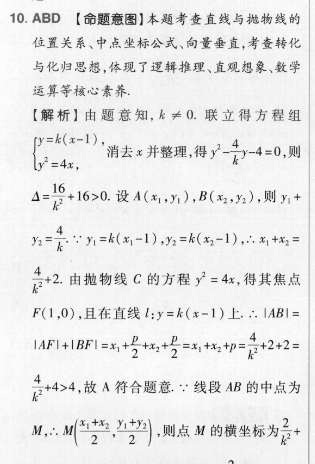 10. ABD 【命题意图】本题考查直线与抛物线的
位置关系、中点坐标公式、向量垂直,考查转化
与化归思想,体现了逻辑推理、直观想象、数学
运算等核心素养.
【解析】由题意知, k ≠ 0. 联立得方程组
{y=k(x-1), y²=4x, 消去 x 并整理,得 y²-4/k y-4=0,则
Δ=16/k²+16>0. 设 A(x₁,y₁),B(x₂,y₂),则 y₁+
y₂=4/k. ∵ y₁=k(x₁-1),y₂=k(x₂-1),∴ x₁+x₂=
4/k²+2. 由抛物线 C 的方程 y²=4x,得其焦点
F(1,0),且在直线 l:y=k(x-1)上.∴ |AB|=
|AF|+|BF|=x₁+p/2+x₂+p/2=x₁+x₂+p=4/k²+2+2=
4/k²+4>4,故 A 符合题意. ∵ 线段 AB 的中点为
M,∴ M((x₁+x₂)/2,(y₁+y₂)/2),则点 M 的横坐标为2/k²+